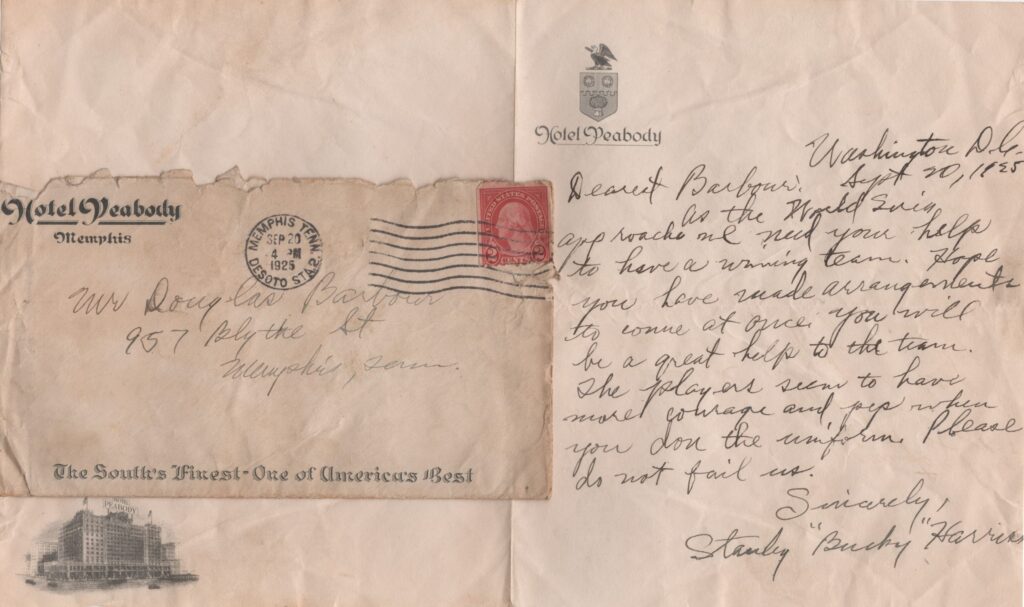 Hotel Peabody
Memphis
MEMPHIS TENN.
SEP 20
4 PM
1925
DESOTO STA.
UNITED STATES POSTAGE
2 CENTS 2
Mr Douglas Barbour
957 Blythe St
Memphis, Tenn.
The South's Finest-One of America's Best
HOTEL PEABODY
Hotel Peabody
Washington D.C.
Sept 20, 1925
Dearest Barbour.
As the World Series
approache we need your help
to have a winning team. Hope
you have made arrangements
to come at once. you will
be a great help to the team.
The players seem to have
more courage and pep when
you don the uniform. Please
do not fail us.
Sincerely,
Stanley "Bucky" Harris